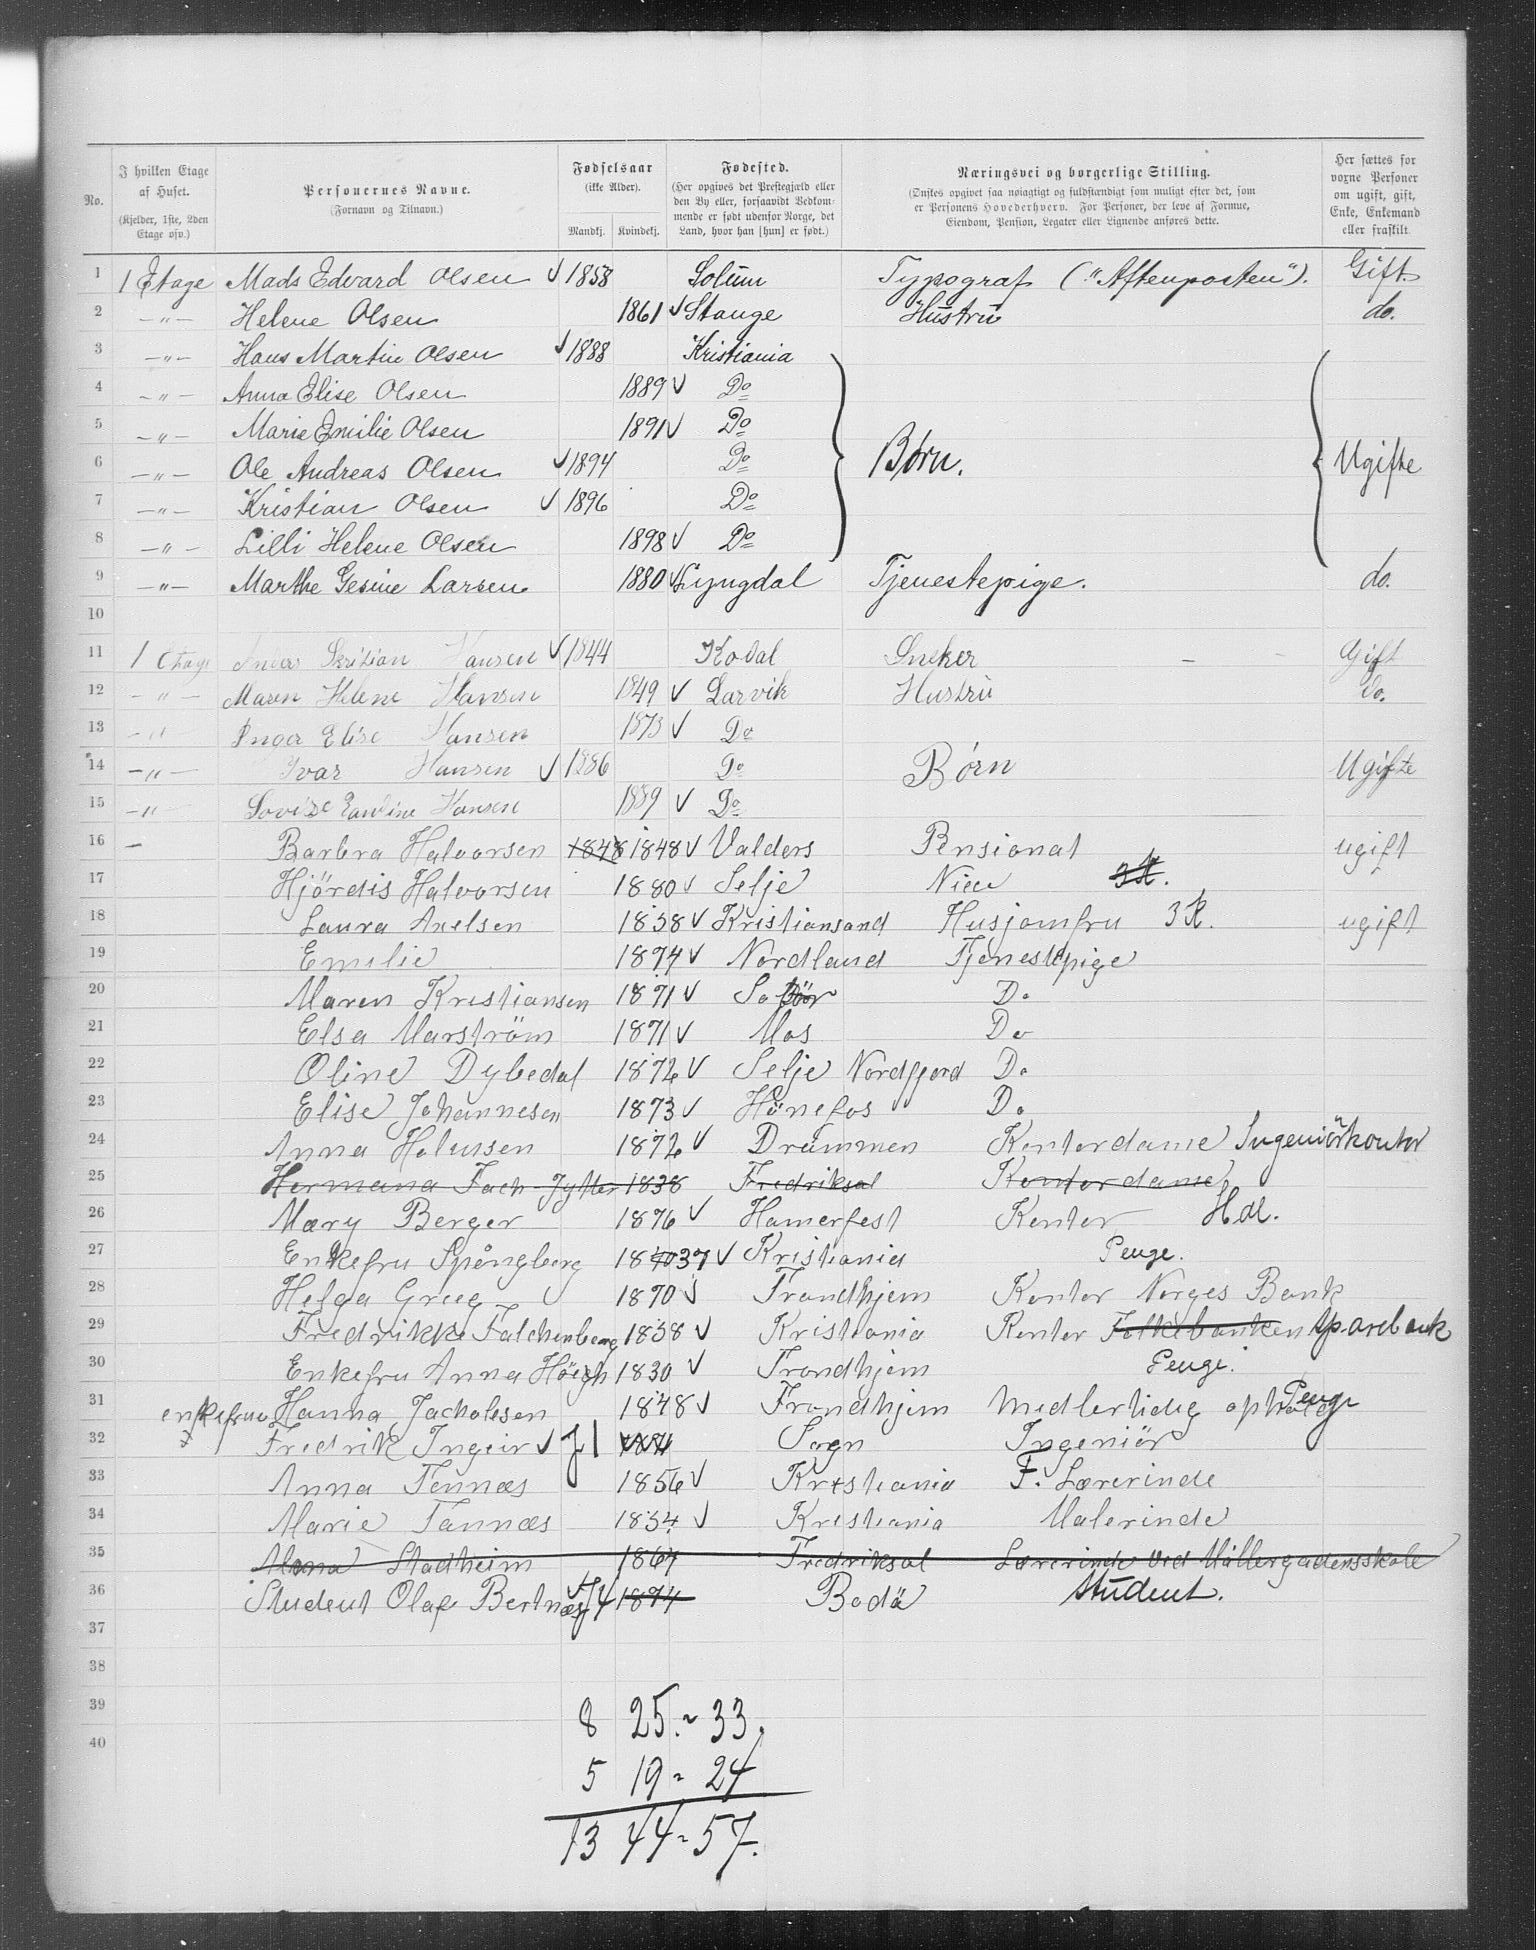 No.
I hvilken Etage af Huset. (Kjelder, 1ste, 2den Etage osv.)
Personernes Navne. (Fornavn og Tilnavn.)
Fødselsaar (ikke Alder). Mandkj. Kvindekj.
Fødested. (Her opgives det Prestegjæld eller den By eller, forsaavidt Vedkommende er født udenfor Norge, det Land, hvor han [hun] er født.)
Næringsvei og borgerlige Stilling. (Ønskes opgivet saa nøiagtigt og fuldstændigt som muligt efter det, som er Personens Hovederhverv. For Personer, der leve af Formue, Eiendom, Pension, Legater eller Lignende anføres dette.
Her sættes for voxne Personer om ugift, gift, Enke, Enkemand eller fraskilt.
1 1 Etage Mads Edvard Olsen √ 1858 Solum Typograf ("Aftenposten"). Gift.
2 -"- Helene Olsen 1861 √ Stange Hustru do.
3 -"- Hans Martin Olsen √ 1888 Kristiania
4 -"- Anna Elise Olsen 1889 √ Do
5 -"- Marie Emilie Olsen 1891 √ Do
6 -"- Ole Andreas Olsen √ 1894 Do Børn. Ugifte
7 -"- Kristian Olsen √ 1896 Do
8 -"- Lilli Helene Olsen 1898 √ Do
9 -"- Marthe Gesine Larsen 1880 √ Lyngdal Tjenestepige. do.
10
11 1 Etage Hansen √ 1844 Kodal Sneker Gift
12 -"- Maren Helene Hansen 1849 √ Larvik Hustru do.
13 -"- Inger Elise Hansen 1873 √ Do
14 -"- Ivar Hansen √ 1886 Do Børn Ugifte
15 -"- Lovise Hansen 1889 √ Do
16 - Barbra Halvorsen 1848 1848 √ Valders Pensionat ugift
17 Hjördis Halvorsen 1880 √ Selje Niece
18 Laura Axelsen 1858 √ Kristiansand Husjomfru 3 K. ugift
19 Emilie 1874 √ Nordland Tjenestepige
20 Maren Kristiansen 1871 √ Do
21 Elsa Marström 1871 √ Mos Do
22 Oline Dybedal 1872 √ Selje Nordfjord Do
23 Elise Johannesen 1873 √ Hönefos Do
24 Anna Helussen 1872 √ Drammen Kontordame Ingeniörkontor
25 Hermana 1838 Fredriksal Kontordame
26 Mary Berger 1876 √ Hamerfest Kontor Hdl.
27 Enkefru Spångberg 184037 √ Kristiania Penge.
28 Helga Grieg 1870 √ Trondhjem Kontor Norges Bank
29 Fredrikke Falchenberg 1858 √ Kristiania Kontor Folkebanken Sparebank
30 Enkefru Anna Höegh 1830 √ Trondhjem Penge.
31 enkefrue Hanna Jacholesen 1848 √ Trondhjem Medlertidig ophold Penge
32 Fredrik Ingeir √ 71 Sogn Ingeniör
33 Anna Tannæs 1856 √ Kristiania F. Lærerinde
34 Marie Tannæs 1854 √ Kristiania Malerinde
35 Stadheim 1867 Fredriksal Lærerinde ved Möllergadensskole
36 Student Olaf Bertnæs √ 74 1874 Bodö Student.
37
38
39 8 25. - 33.
40 5 19 - 24
13 44 - 57.